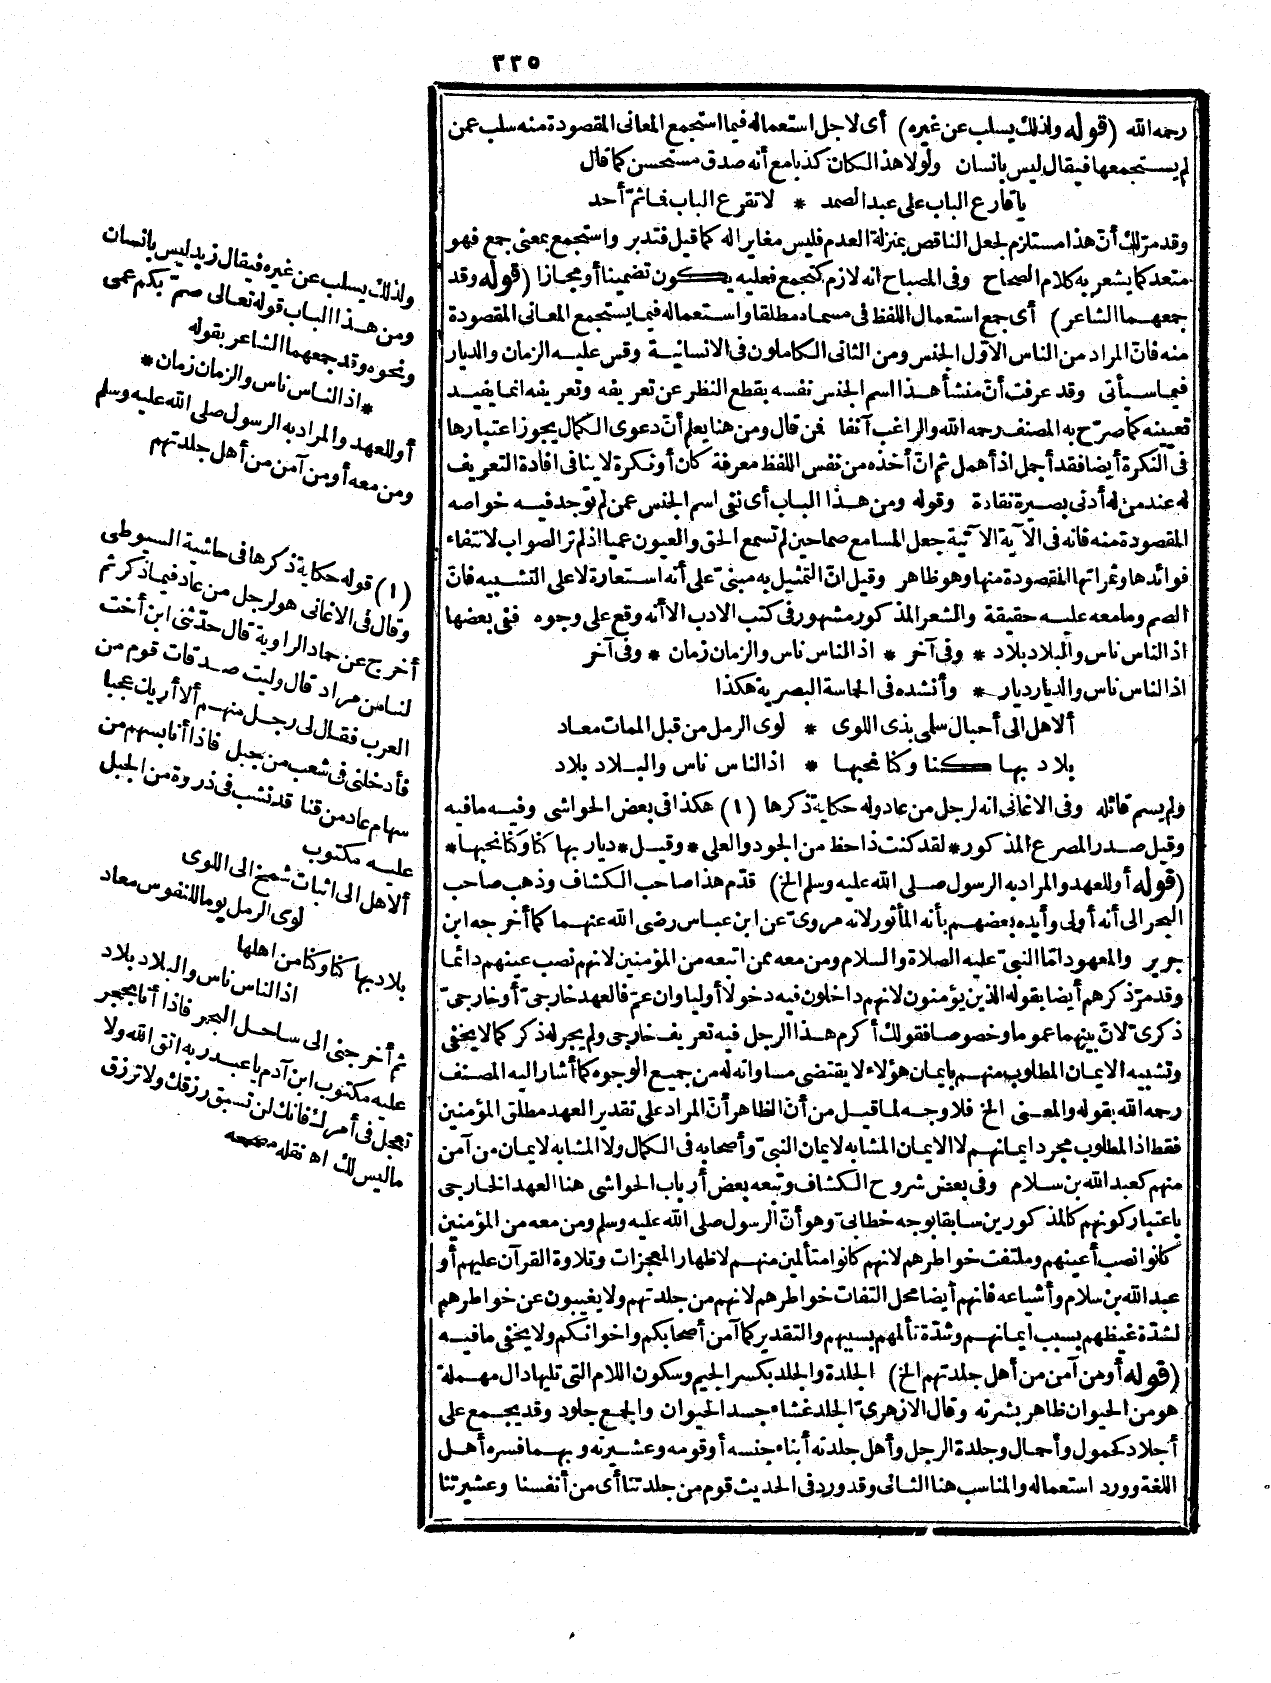 ٣٣٥
رحمه الله (قوله ولذلك يسلب عن غيره) أى لاجل استعماله فيما استجمع المعانى المقصودة منه سلب عمن
لم يستجمعها فيقال ليس بانسان ولولا هذا لكان كذبا مع أنه صدق مستحسن كما قال
يا قارع الباب على عبد الصمد * لا تقرع الباب فما ثمّ أحد
وقد مرّ لك أنّ هذا مستلزم لجعل الناقص بمنزلة العدم فليس مغايرا له كما قيل فتدبر واستجمع بمعنى جمع فهو
متعد كما يشعر به كلام الصحاح وفى المصباح انه لازم كتجمع فعليه يكون تضمينا أو مجازا (قوله وقد
جمعهما الشاعر) أى جمع استعمال اللفظ فى مسماه مطلقا واستعماله فيما يستجمع المعانى المقصودة
منه فانّ المراد من الناس الاوّل الجنس ومن الثانى الكاملون فى الانسانية وقس عليه الزمان والديار
فيما سيأتى وقد عرفت أنّ منشأ هذا اسم الجنس نفسه بقطع النظر عن تعريفه وتعريفه انما يفيد
تعيينه كما صرّح به المصنف رحمه الله والراغب آنفا فمن قال ومن هنا يعلم أنّ دعوى الكمال يجوز اعتبارها
فى النكرة أيضا فقد أجمل اذ أهمل ثم انّ أخذه من نفس اللفظ معرفة كان أو نكرة لا ينافى افادة التعريف
له عند من له أدنى بصيرة نقادة وقوله ومن هذا الباب أى نفى اسم الجنس عمن لم توجد فيه خواصه
المقصودة منه فانه فى الآية الآتية جعل المسامع صماحين لم تسمع الحق والعيون عميا اذ لم تر الصواب لانتفاء
فوائدها وثمراتها المقصودة منها وهو ظاهر وقيل انّ التمثيل به مبنىّ على أنه استعارة لا على التشبيه فانّ
الصم وما معه عليه حقيقة والشعر المذكور مشهور فى كتب الادب الا أنه وقع على وجوه ففى بعضها
اذ الناس ناس والبلاد بلاد * وفى آخر * اذ الناس ناس والزمان زمان * وفى آخر
اذ الناس ناس والديار ديار * وأنشده فى الحاسة البصرية هكذا
ألا هل الى أحبال سلمى بذى اللوى * لوى الرمل من قبل الممات معاد
بلاد بها كنا وكنا نحبها * اذ الناس ناس والبلاد بلاد
ولم يسم قائله وفى الاغانى انه لرجل من عاد وله حكاية ذكرها (١) هكذا فى بعض الحواشى وفيه ما فيه
وقيل صدر المصرع المذكور * لقد كنت ذا حظ من الجود والعلى * وقيل * ديار بها كنا وكنا نحبها *
(قوله أو للعهد والمراد به الرسول صلى الله عليه وسلم الخ) قدّم هذا صاحب الكشاف وذهب صاحب
البحر الى أنه أولى وأيده بعضهم بأنه المأثور لانه مروىّ عن ابن عباس رضى الله عنهما كما أخرجه ابن
جرير والمعهود امّا النبىّ عليه الصلاة والسلام ومن معه ممن اتبعه من المؤمنين لانهم نصب عينهم دائما
وقد مرّ ذكرهم أيضا بقوله الذين يؤمنون لانهم داخلون فيه دخولا أوليا وان عمّ فالعهد خارجىّ أو خارجىّ
ذكرىّ لانّ بينهما عموما وخصوصا فقولك أكرم هذا الرجل فيه تعريف خارجى ولم يجر له ذكر كما لا يخفى
وتشبيه الايمان المطلوب منهم بايمان هؤلاء لا يقتضى مساواته له من جميع الوجوه كما أشار اليه المصنف
رحمه الله بقوله والمعنى الخ فلا وجه لما قيل من أنّ الظاهر أنّ المراد على تقدير العهد مطلق المؤمنين
فقط اذ المطلوب مجرد ايمانهم لا الايمان المشابه لايمان النبىّ وأصحابه فى الكمال ولا المشابه لايمان من آمن
منهم كعبد الله بن سلام وفى بعض شروح الكشاف وتبعه بعض أرباب الحواشى هنا العهد الخارجى
باعتبار كونهم كالمذكورين سابقا بوجه خطابىّ وهو أنّ الرسول صلى الله عليه وسلم ومن معه من المؤمنين
كانوا نصب أعينهم وملتفت خواطرهم لانهم كانوا متألمين منهم لاظهار المعجزات وتلاوة القرآن عليهم أو
عبد الله بن سلام وأشياعه فانهم أيضا محل التفات خواطرهم لانهم من جلدتهم ولا يغيبون عن خواطرهم
لشدّة غيظهم بسبب ايمانهم وشدّة تألمهم بسببهم والتقدير كما آمن أصحابكم واخوانكم ولا يخفى ما فيه
(قوله أو من آمن من أهل جلدتهم الخ) الجلدة والجلد بكسر الجيم وسكون اللام التى تليها دال مهملة
هو من الحيوان ظاهر بشرته وقال الازهرىّ الجلد غشاء جسد الحيوان والجمع جلود وقد يجمع على
أجلاد كحمول وأحمال وجلدة الرجل وأهل جلدته أبناء جنسه أو قومه وعشيرته وبهما فسره أهل
اللغة وورد استعماله والمناسب هنا الثانى وقد ورد فى الحديث قوم من جلدتنا أى من أنفسنا وعشيرتنا
ولذلك يسلب عن غيره فيقال زيد ليس بانسان
ومن هذا الباب قوله تعالى صمّ بكم عمى
ونحوه وقد جمعهما الشاعر بقوله
* اذ الناس ناس والزمان زمان *
أو للعهد والمراد به الرسول صلى الله عليه وسلم
ومن معه أو من آمن من أهل جلدتهم
(١) قوله حكاية ذكرها فى حاشية السيوطى
وقال فى الاغانى هو لرجل من عاد فيما ذكر ثم
أخرج عن حماد الراوية قال حدّثنى ابن أخت
لنا من مراد قال وليت صدقات قوم من
العرب فقال لى رجل منهم ألا أريك عجبا
فأدخلنى فى شعب من جبل فاذا أنا بسهم من
سهام عاد من قنا قد نشب فى ذروة من الجبل
عليه مكتوب
ألا هل الى اثبات شمخ الى اللوى
لوى الرمل يوما للنفوس معاد
بلاد بها كنا وكنا من اهلها
اذ الناس ناس والبلاد بلاد
ثم أخرجنى الى ساحل البحر فاذا أنا بحجر
عليه مكتوب ابن آدم يا عبد ربه اتق الله ولا
تعجل فى أمرك فانك لن تسبق رزقك ولا ترزق
ما ليس لك اه نقله مصححه